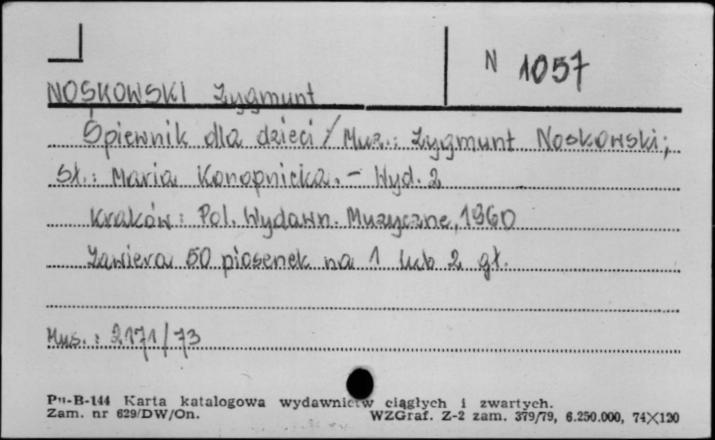 N 1057
NOSKOWSKI Zygmunt
Śpiewnik dla dzieci / Muz.: Zygmunt Noskowski;
sł.: Maria Konopnicka. - Wyd. 2
Kraków: Pol. Wydawn. Muzyczne, 1960
Zawiera 50 piosenek na 1 lub 2 gł.
Mus.: 2171/73
Pu-B-144 Karta katalogowa wydawnictw ciągłych i zwartych.
Zam. nr 629/DW/On. WZGraf. Z-2 zam. 379/79, 6.250.000, 74X120